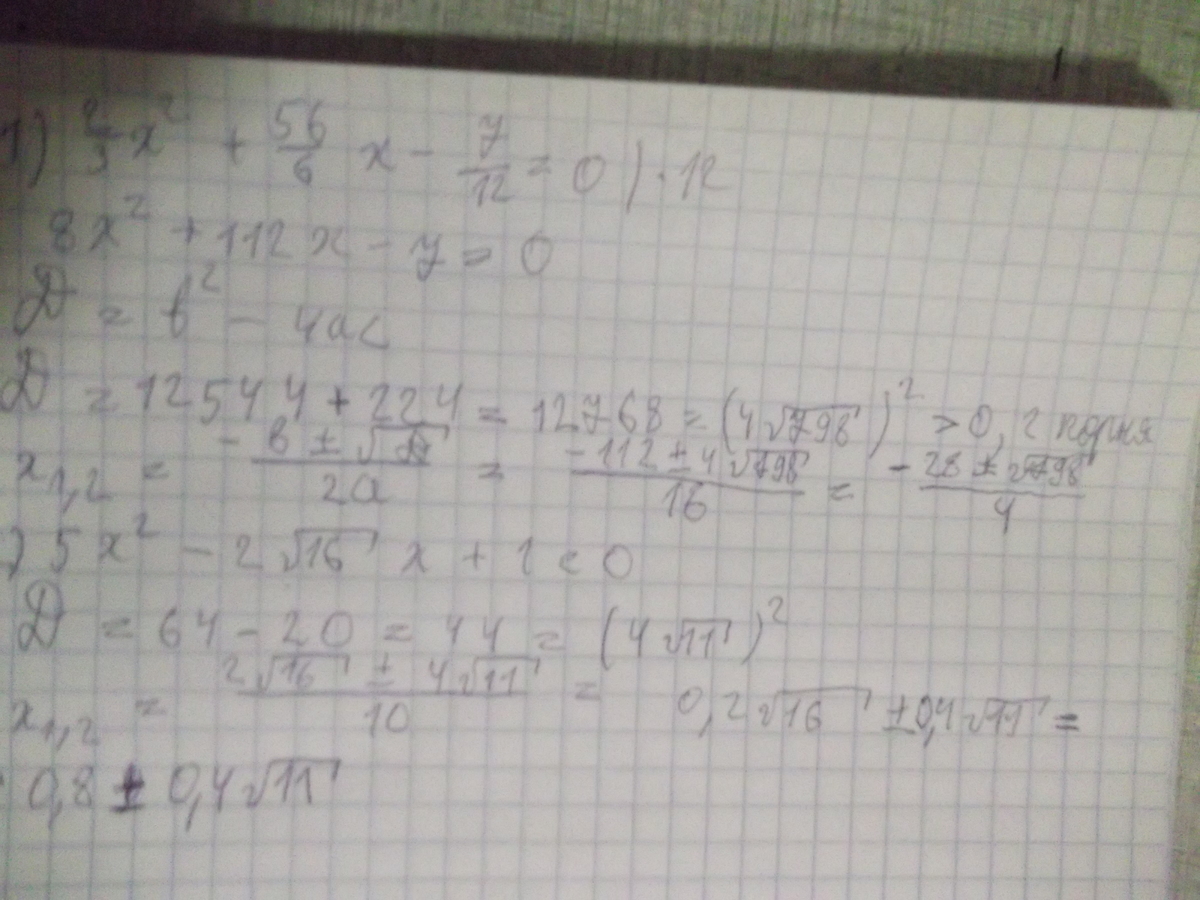 1) 2/3 x² + 56/6 x - 7/12 = 0 ) · 12
8x² + 112x - 7 = 0
D = b² - 4ac
D = 12544 + 224 = 12768 = (4√798)² > 0, 2 корня
x₁,₂ = -b ± √D / 2a = -112 ± 4√798 / 16 = -28 ± √798 / 4
) 5x² - 2√16 x + 1 = 0
D = 64 - 20 = 44 = (4√11)²
x₁,₂ = 2√16 ± 4√11 / 10 = 0,2√16 ± 0,4√11 =
0,8 ± 0,4√11